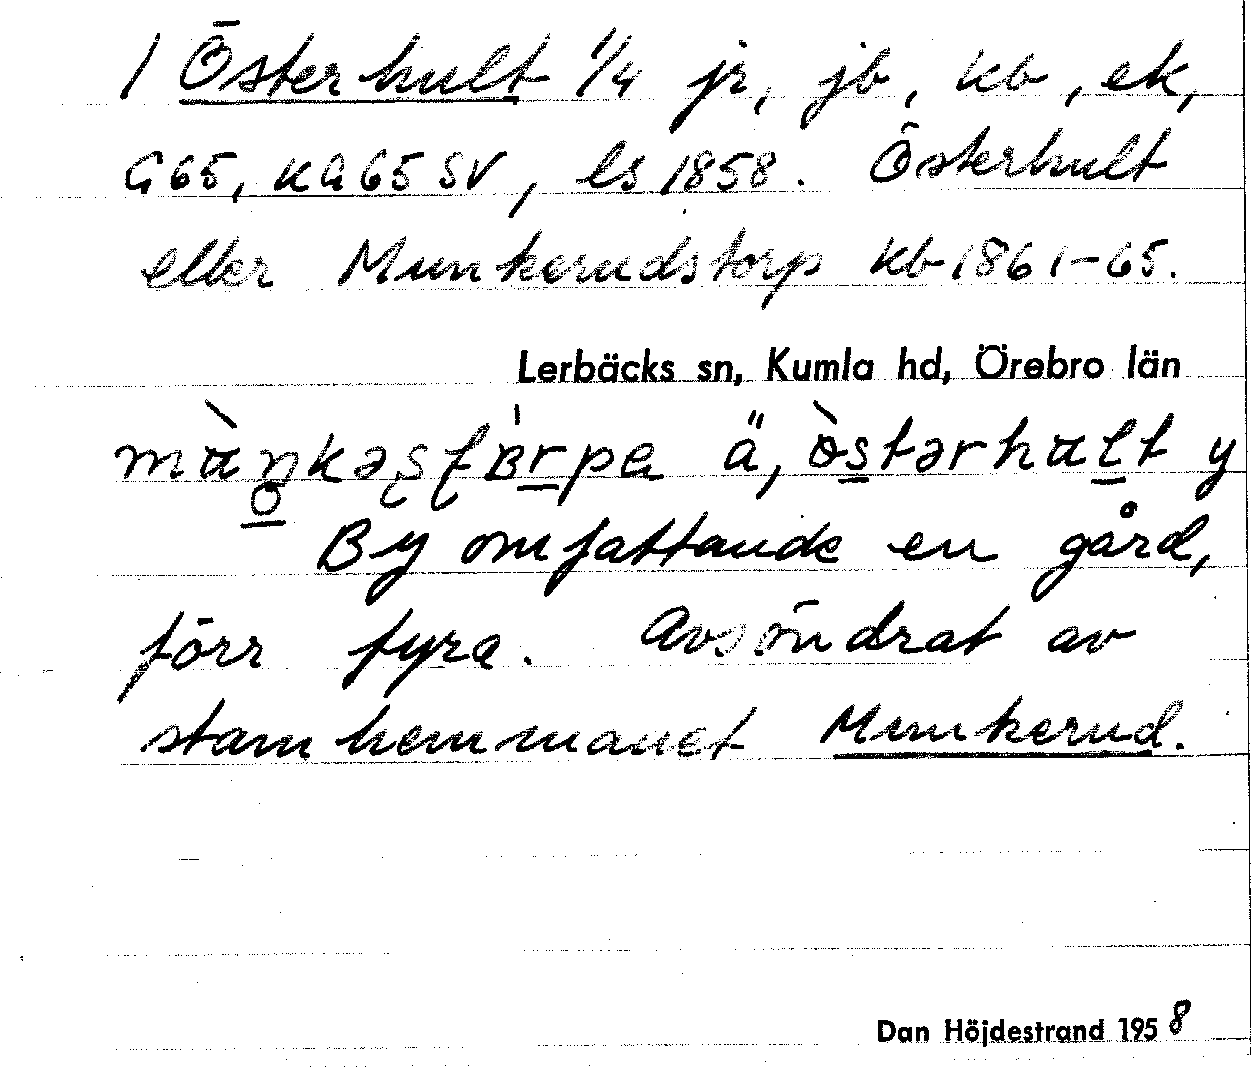 1 Österhult 1/4 jr, jb, kb, ek,
G65, KG65 SV, ls 1858. Österhult
eller Munkerudstorp kb 1861-65.
Lerbäcks sn, Kumla hd, Örebro län
ä, y
By omfattande en gård,
förr fyra. Avsöndrat av
stamhemmanet Munkerud.
Dan Höjdestrand 1958